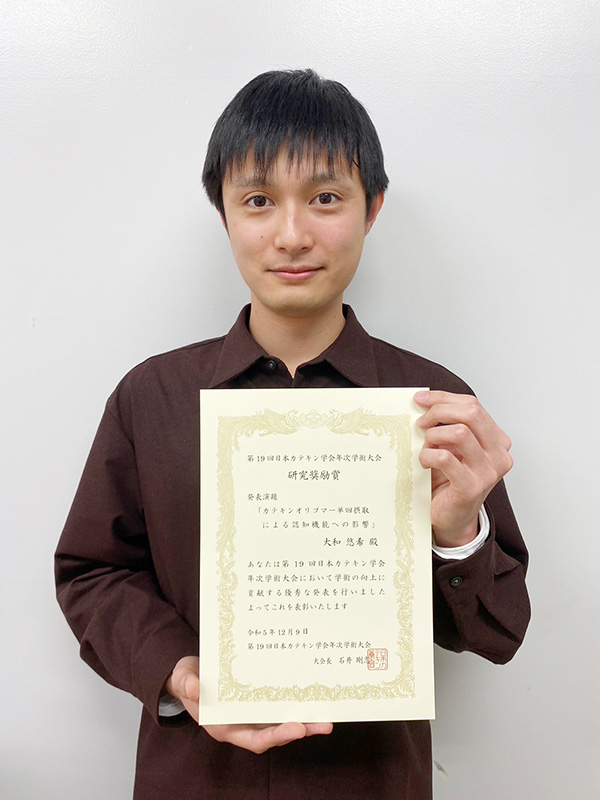 第19回日本カテキン学会年次学術大会
研究奨励賞
発表演題
「カテキンオリゴマー単回摂取
による認知機能への影響」
大和 悠希 殿
あなたは第 19 回日本カテキン学会
年次学術大会において学術の向上に
貢献する優秀な発表を行いました
よってこれを表彰いたします
令和5年12月9日
第19回日本カテキン学会年次学術大会
大会長 石井 剛志